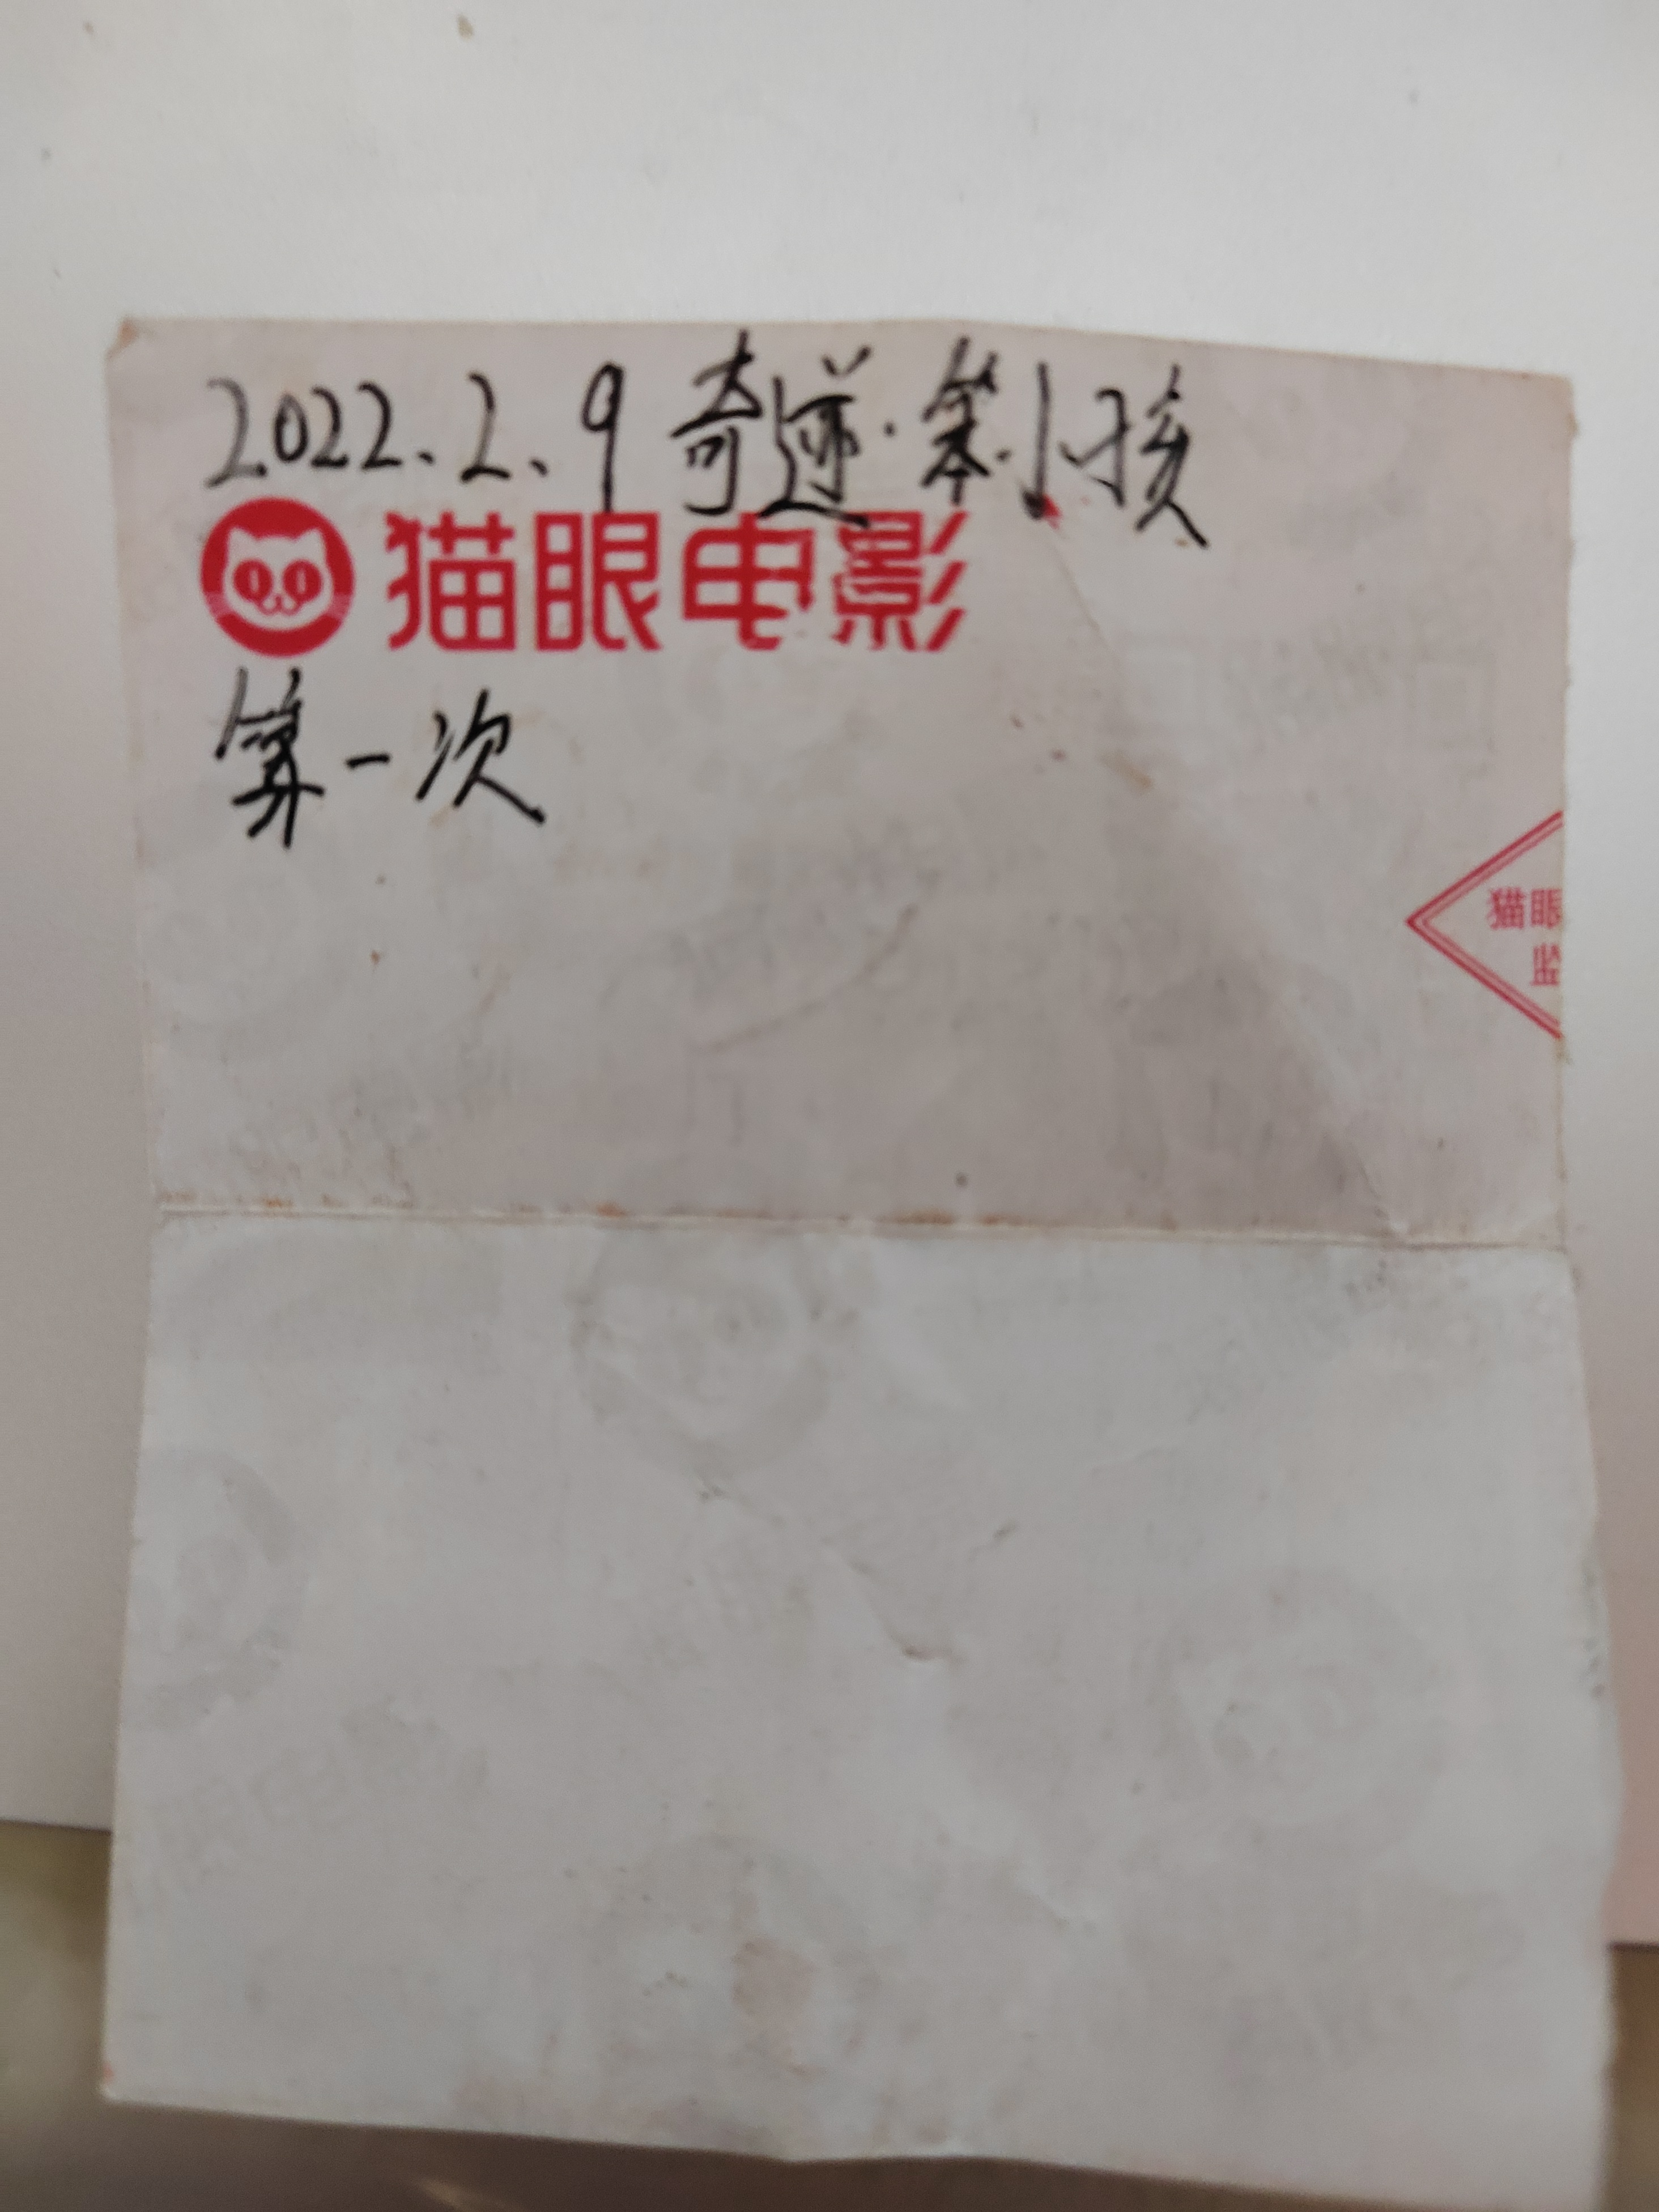 2022.2.9 奇迹·笨小孩
猫眼电影
算一次
猫眼
监